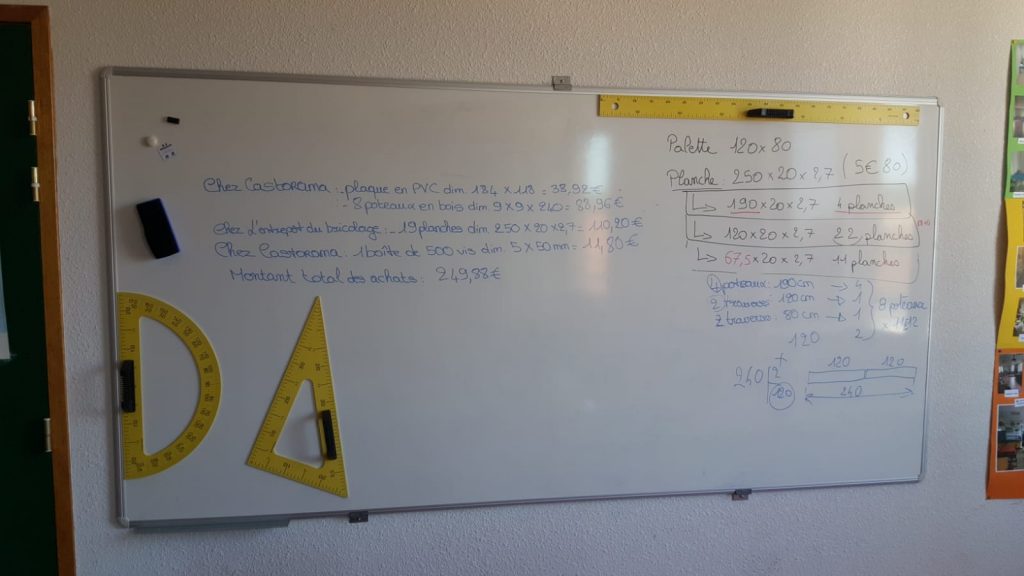 Chez Castorama : plaque en PVC dim 184 × 113 = 38,92€
- 8 poteaux en bois dim 9×9×240 = 83,96€
Chez L'entrepot du bricolage : - 19 planches dim 250×20×2,7 = 110,20€
Chez Castorama : 1 boîte de 500 vis dim 5×50mm = 11,80€
Montant total des achats : 249,88€
Palette 120×80
Planche : 250×20×2,7 (5€80)
↳ 190×20×2,7 4 planches
↳ 120×20×2,7 22 planches
↳ 67,5×20×2,7 11 planches
4 poteaux : 190cm → 4
2 traverse : 120cm → 1
2 traverse : 80cm → 1
2
8 poteaux
120
240 2
120
120 120
240